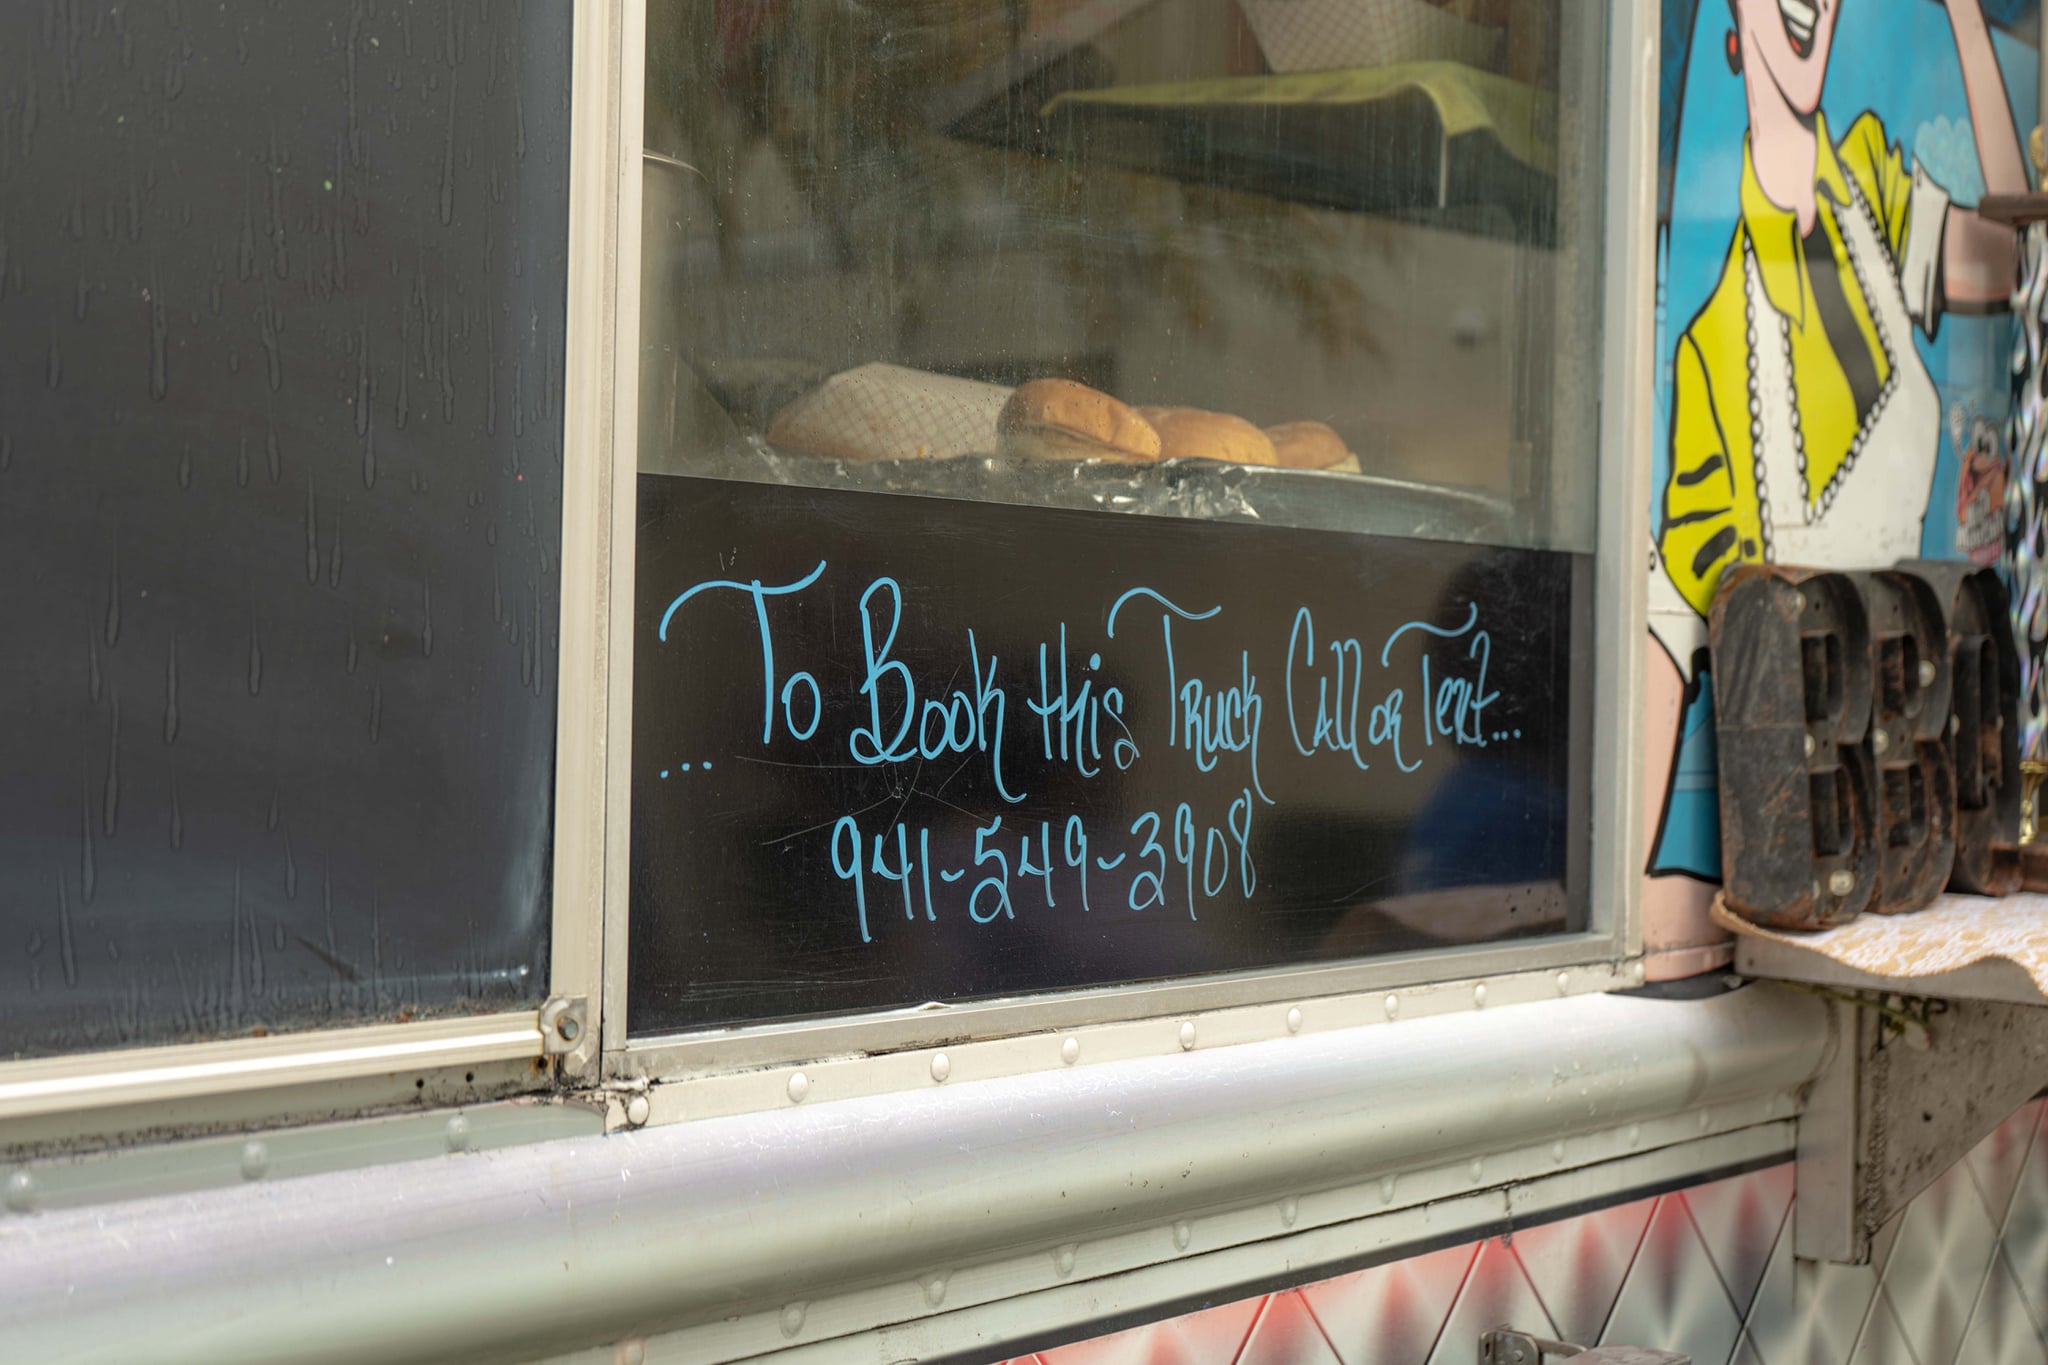 ... To Book this Truck Call or Text...
941-549-3908
BBQ